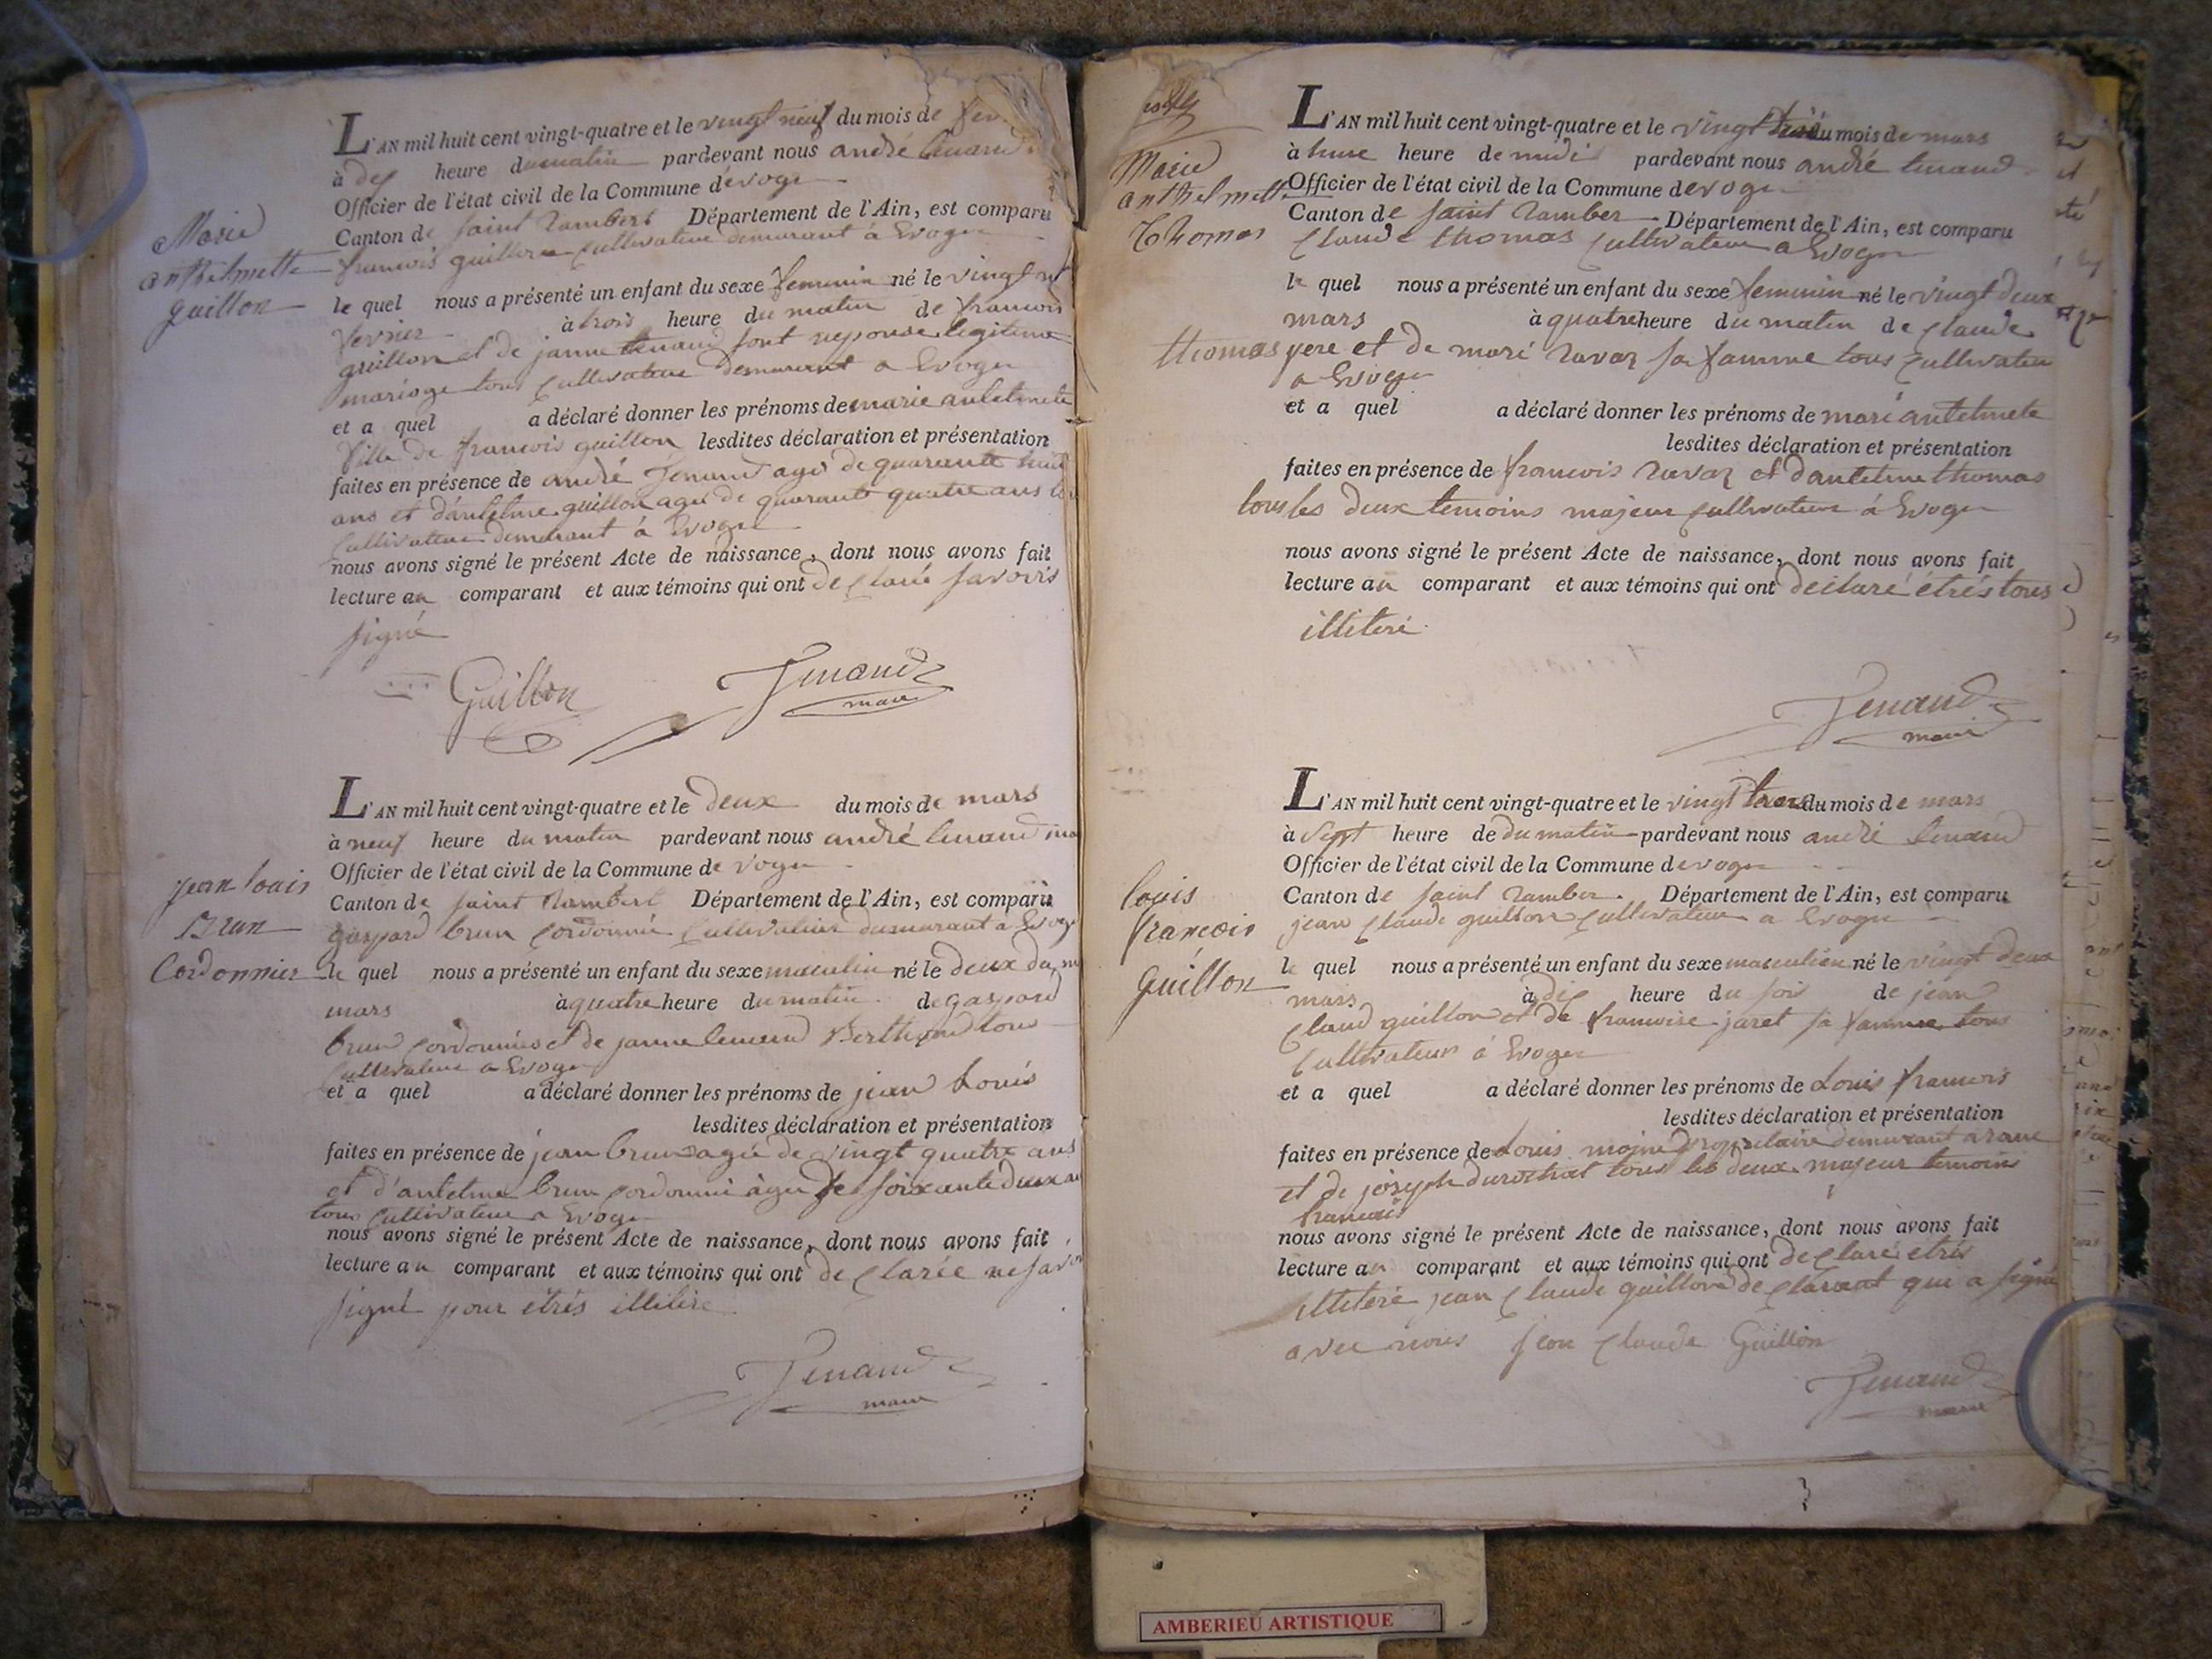 L'AN mil huit cent vingt-quatre et le vingt neuf du mois de
à dix heure du matin pardevant nous andré tenand
Officier de l'état civil de la Commune d'evoge
Canton de saint rambert Département de l'Ain, est comparu
francois guillon cultivateur demurant à Evoge
Marie
anthelmette
guillon
le quel nous a présenté un enfant du sexe feminin né le vingt
fevrier à trois heure du matin de francois
guillon et de janne tenand sont eponse legitime
mariage tous cultivateur demurant a Evoge
et a quel a déclaré donner les prénoms de marie antelmete
fille de francois guillon lesdites déclaration et présentation
faites en présence de andré Tenand agé de quarante huit
ans et d'antelme guillon agé de quarante quatre ans
cultivateur demurant à Evoge
nous avons signé le présent Acte de naissance, dont nous avons fait
lecture au comparant et aux témoins qui ont declaré savoirs
signé
Guillon
Tenand
maire
L'AN mil huit cent vingt-quatre et le deux du mois de mars
à neuf heure du matin pardevant nous andré tenand
Officier de l'état civil de la Commune de voge
Canton de saint rambert Département de l'Ain, est comparu
gaspard brun cordonnié cultivateur demurant à Evoge
jean louis
Brun
Cordonnier
le quel nous a présenté un enfant du sexe masculin né le deux du
mars à quatre heure du matin de gaspard
brun cordonnier et de janne tenand Berthond tous
cultivateur a Evoge
et a quel a déclaré donner les prénoms de jean Louis
lesdites déclaration et présentation
faites en présence de jean brun agée de vingt quatre ans
et d'antelme brun cordonnié àgée de soixante deux
tous cultivateur a Evoge
nous avons signé le présent Acte de naissance, dont nous avons fait
lecture au comparant et aux témoins qui ont declarée ne
signé pour étrés illitére
Tenand
maire
L'AN mil huit cent vingt-quatre et le vingt du mois de mars
à hune heure de midi pardevant nous andré tenand
Officier de l'état civil de la Commune d'evoge
Canton de saint ramber Département de l'Ain, est comparu
Claude thomas cultivateur a Evoge
Marie
anthelmette
Thomas
le quel nous a présenté un enfant du sexe feminin né le vingt deux
mars à quatre heure du matin de claude
thomas pere et de marié ravaz sa famme tous cultivateur
a Evoge
et a quel a déclaré donner les prénoms de marié antelmete
lesdites déclaration et présentation
faites en présence de francois ravaz et d'antelme thomas
tous les deux temoins majeur cultivateur à Evoge
nous avons signé le présent Acte de naissance, dont nous avons fait
lecture au comparant et aux témoins qui ont déclaré étrés tous
illiteré
Tenand
maire
L'AN mil huit cent vingt-quatre et le vingt du mois de mars
à sept heure de du matin pardevant nous andré tenand
Officier de l'état civil de la Commune d'evoge
Canton de saint ramber Département de l'Ain, est comparu
jean claude guillon cultivateur a Evoge
louis
françois
guillon
le quel nous a présenté un enfant du sexe masculien né le vingt deux
mars à dix heure du soir de jean
claud guillon et de francoise jaret sa famme tous
cultivateur à Evoge
et a quel a déclaré donner les prénoms de Louis francois
lesdites déclaration et présentation
faites en présence de Louis moine propietaire demurant a rane
et de joseph durochat tous les deux majeur temoins
francais
nous avons signé le présent Acte de naissance, dont nous avons fait
lecture au comparant et aux témoins qui ont declaré étrés
illiteré jean claude guillon declarant qui a signé
avec nous jean claude Guillon
Tenand
maire
AMBERIEU ARTISTIQUE